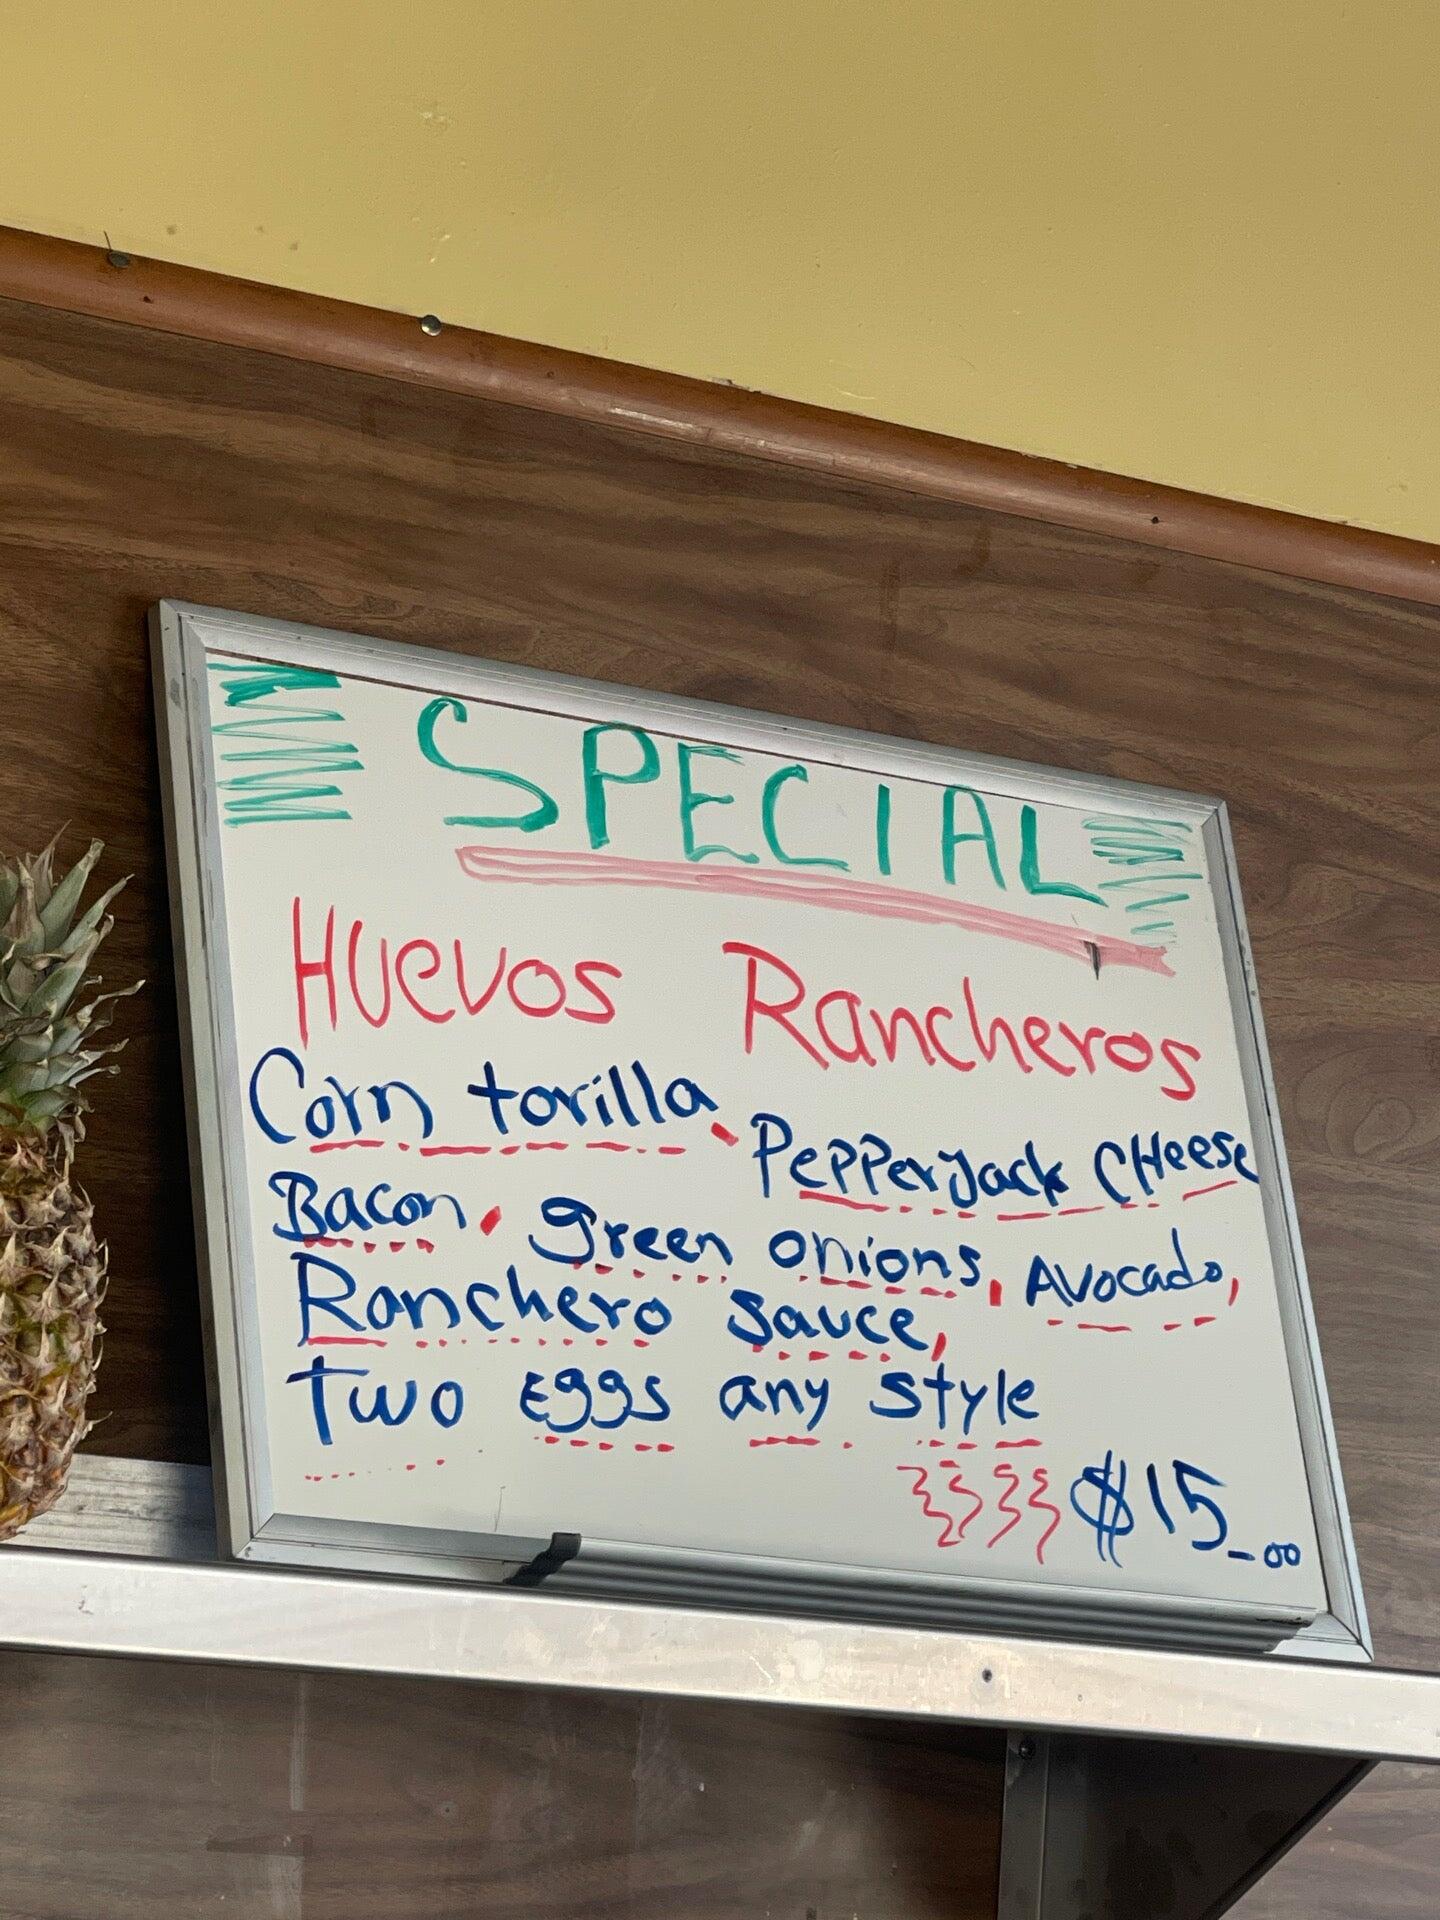 SPECIAL
HUevos Rancheros
Corn torilla, PepperJack CHeese
Bacon, green onions, Avocado,
Ranchero sauce,
Two Eggs any style
$15_00